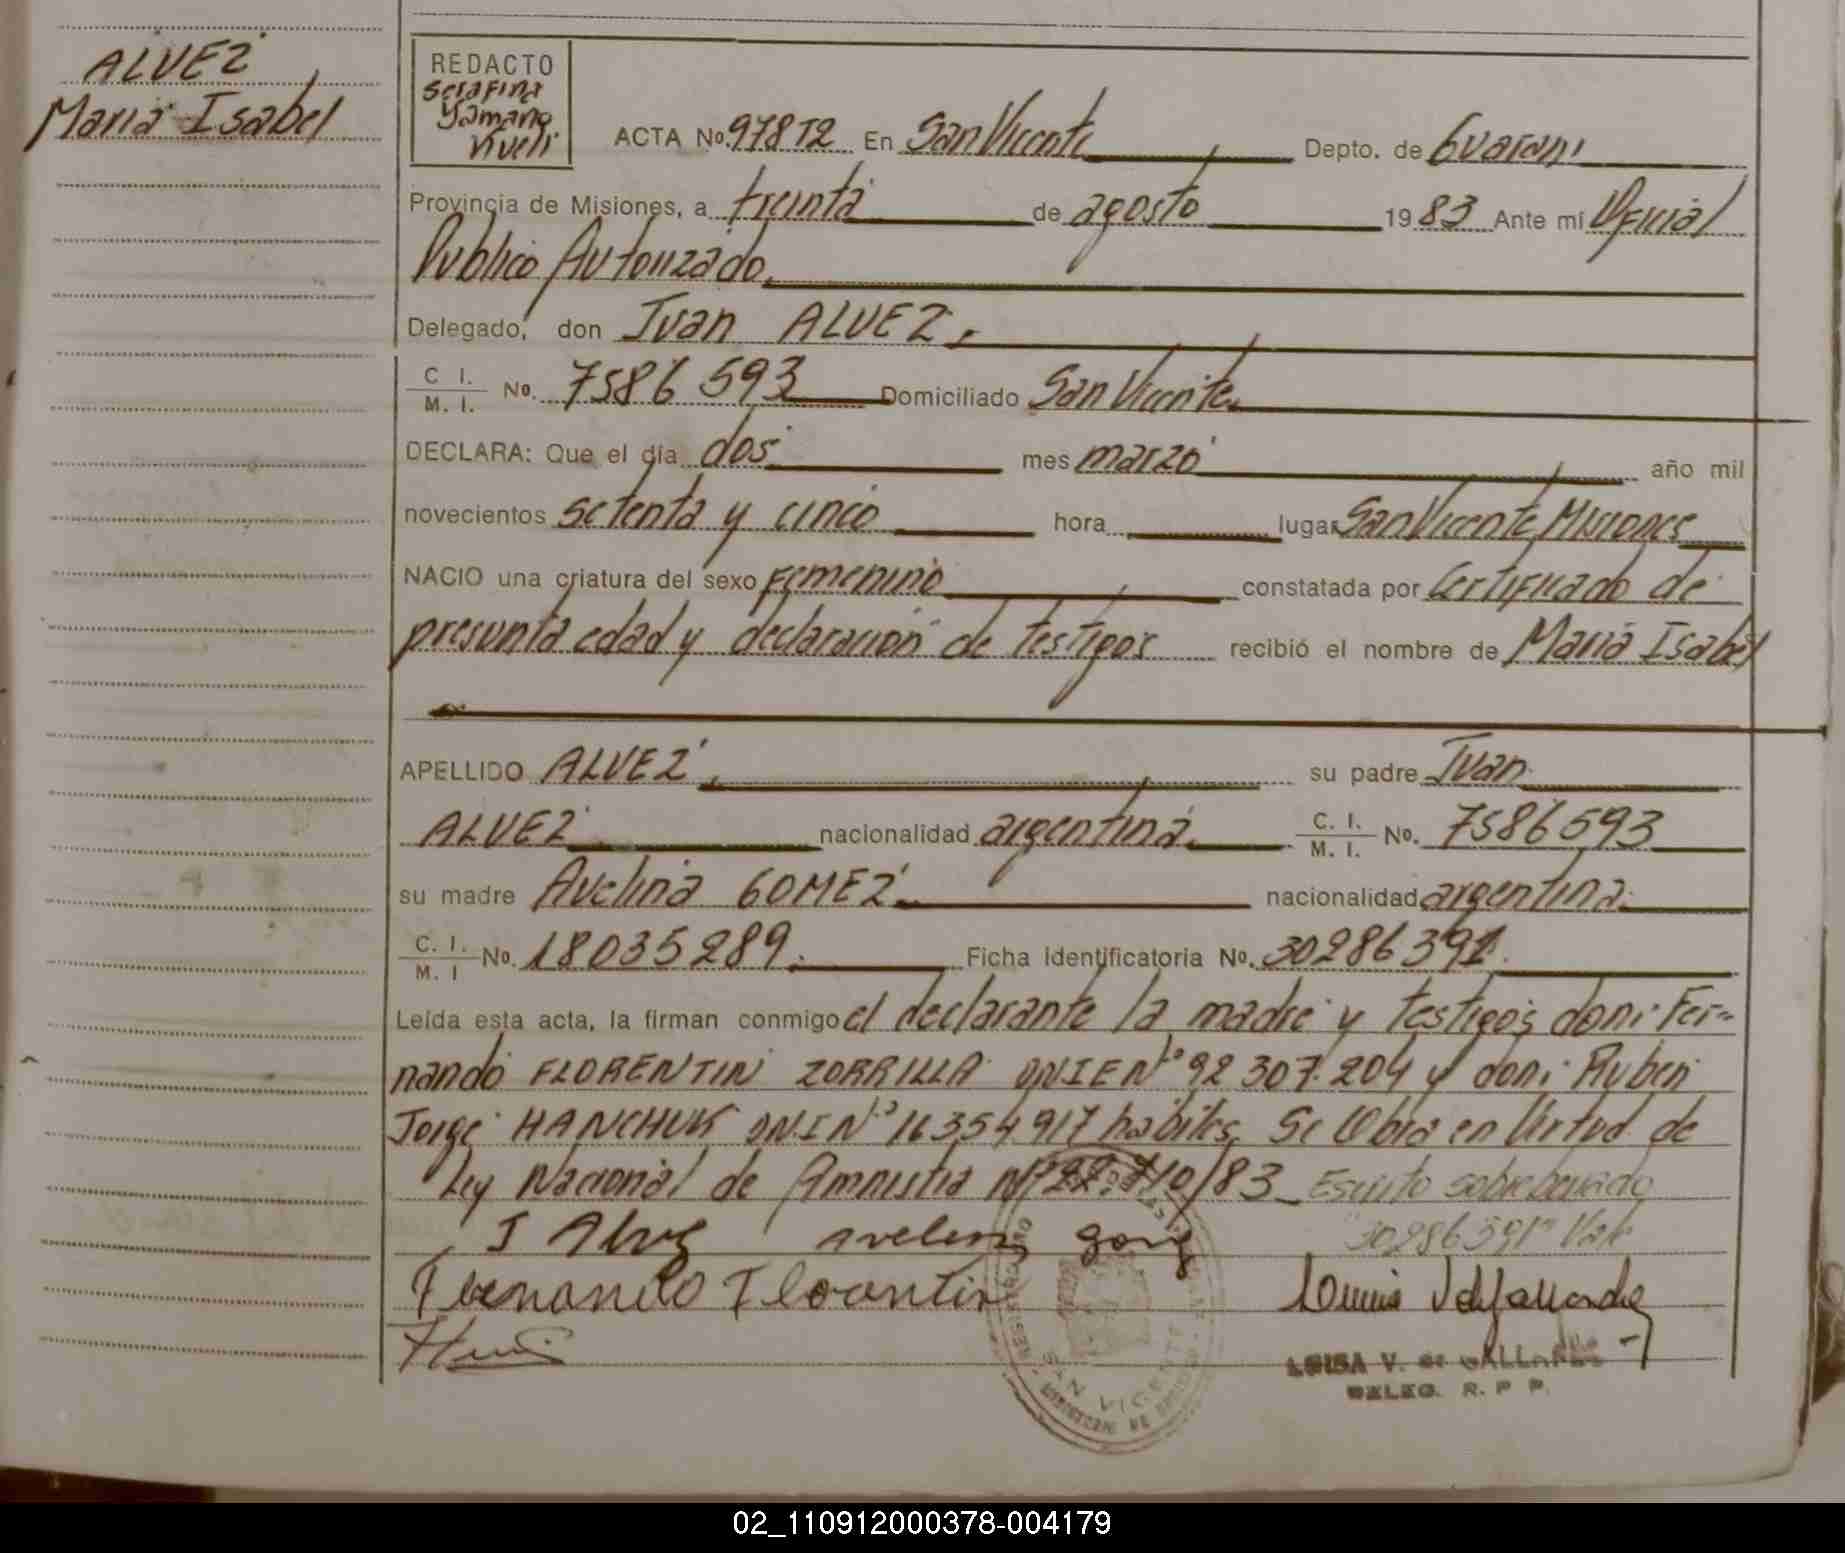 ALVEZ
Maria Isabel
REDACTO
Serafina
Yamano
Viveli
ACTA No. 978 T2 En San Vicente Depto. de Guarani
Provincia de Misiones, a treinta de agosto 1983 Ante mí Oficial
Publico Autorizado.
Delegado, don Juan ALVEZ.
C. I. / M. I. No. 7586593 Domiciliado San Vicente
DECLARA: Que el día dos mes marzo año mil
novecientos setenta y cinco hora lugar San Vicente Misiones
NACIO una criatura del sexo Femenino constatada por Certificado de
presunta edad y declaracion de testigos recibió el nombre de Maria Isabel
APELLIDO ALVEZ. su padre Juan
ALVEZ nacionalidad argentina. C. I. / M. I. No. 7586593
su madre Avelina GOMEZ nacionalidad argentina.
C. I. / M. I No. 18035289. Ficha identificatoria No. 30286391.
Leída esta acta, la firman conmigo el declarante la madre y testigos don: Fer-
nando FLORENTIN ZORRILLA DNIE Nº 92.307.204 y don: Ruben
Jorge HANCHUK DNI Nº 16354917 habiles. Se Obra en Virtud de
Ley Nacional de Amnistia Nº 22.710/83 Escrito sobreborrado
"30286391" Vale
J Alvez avelina gomez
Fernando Florentin
SAN VICENTE
LUISA V. de GALLARDO
DELEG. R. P. P.
02_110912000378-004179